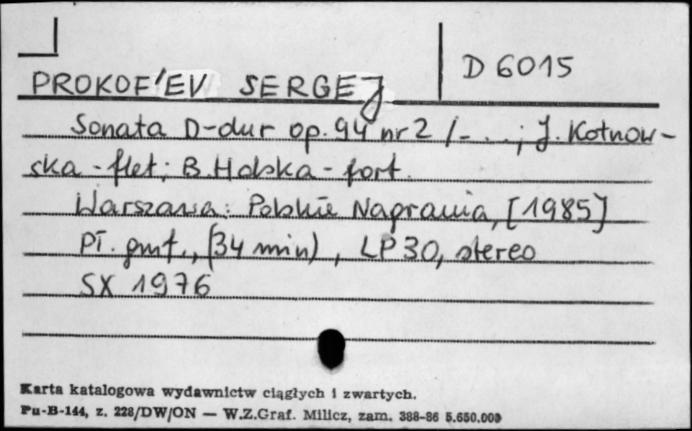 D 6015
PROKOF'EV SERGEJ
Sonata D-dur op. 94 nr 2 / - . . . ; J. Kotnow-
ska - flet ; B. Halska - fort.
Warszawa : Polskie Nagrania, [1985]
Pł. gmf., (34 min), LP 30, stereo
SX 1976
Karta katalogowa wydawnictw ciągłych i zwartych.
Pu-B-144, z. 228/DW/ON — W.Z.Graf. Milicz, zam. 388-86 5.650.000